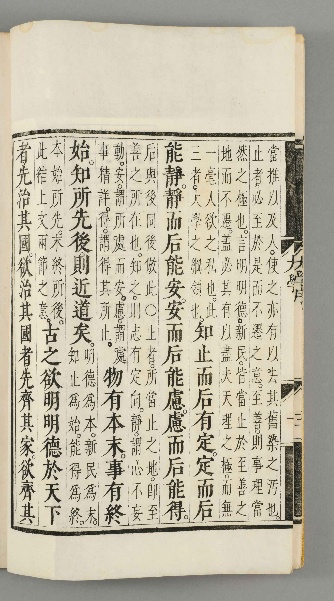 當推以及人使之亦有以去其舊染之汚也
止者必至於是而不遷之意至善則事理當
然之極也言明明德新民皆當止於至善之
地而不遷蓋必其有以盡夫天理之極而無
一毫人欲之私也此
三者大學之綱領也
知止而后有定定而后
能靜靜而后能安安而后能慮慮而后能得
后與後同後倣此〇止者所當止之地卽至
善之所在也知之則志有定向靜謂心不妄
動安謂所處而安慮謂處
事精詳得謂得其所止
物有本末事有終
始知所先後則近道矣
明德爲本新民爲末
知止爲始能得爲終
本始所先末終所後
此結上文兩節之意
古之欲明明德於天下
者先治其國欲治其國者先齊其家欲齊其
大學